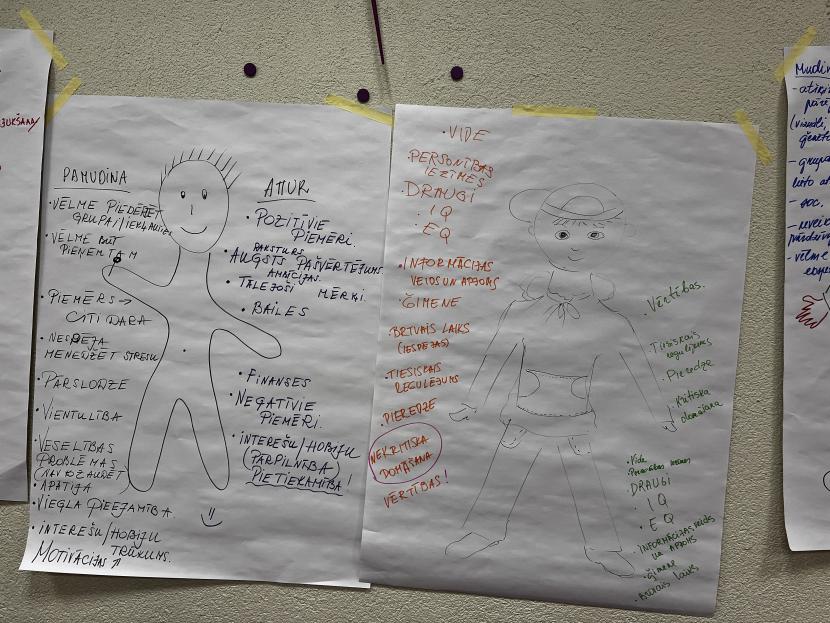 JUKŠANA
PAMUDINA
• VĒLME PIEDERĒT
GRUPAI/IEKĻAUTIES
• VĒLME BŪT
PIEŅEMTAM
• PIEMĒRS →
CITI DARA
• NESPĒJA
MENEDŽĒT STRESU
• PĀRSLODZE
• VIENTULĪBA
• VESELĪBAS
PROBLĒMAS
(NAV DZAUDĒT)
• APĀTIJA
• VIEGLA PIEEJAMĪBA.
• INTEREŠU/HOBIJU
TRŪKUMS.
MOTIVĀCIJAS
ATTUR
• POZITĪVIE
PIEMĒRI.
RAKSTURS
• AUGSTS PAŠVĒRTĒJUMS
AMBĪCIJAS
• TĀLEJOŠI MĒRĶI.
• BAILES
• FINANSES
• NEGATĪVIE
PIEMĒRI.
• INTEREŠU/HOBIJU
(PĀRPILNĪBA)
PIETIEKAMĪBA!
• VIDE
• PERSONĪBAS
IEZĪMES
• DRAUGI
• IQ
• EQ
• INFORMĀCIJAS
VEIDS UN APJOMS
• ĢIMENE
• BRĪVAIS LAIKS
(IESPĒJAS)
• TIESISKAIS
REGULĒJUMS
• PIEREDZE
NEKRITISKA
DOMĀŠANA
• VĒRTĪBAS!
• Vērtības.
• Tiesiskais
regulējums
• Pieredze
• Kritiska
domāšana
• Vide
• Personības iezīmes
• DRAUGI
• IQ
• EQ
• INFORMĀCIJAS VEIDS
UN APJOMS
• Ģimene
• Brīvais laiks
Mudin
- grupa
- soc.
- vēlme